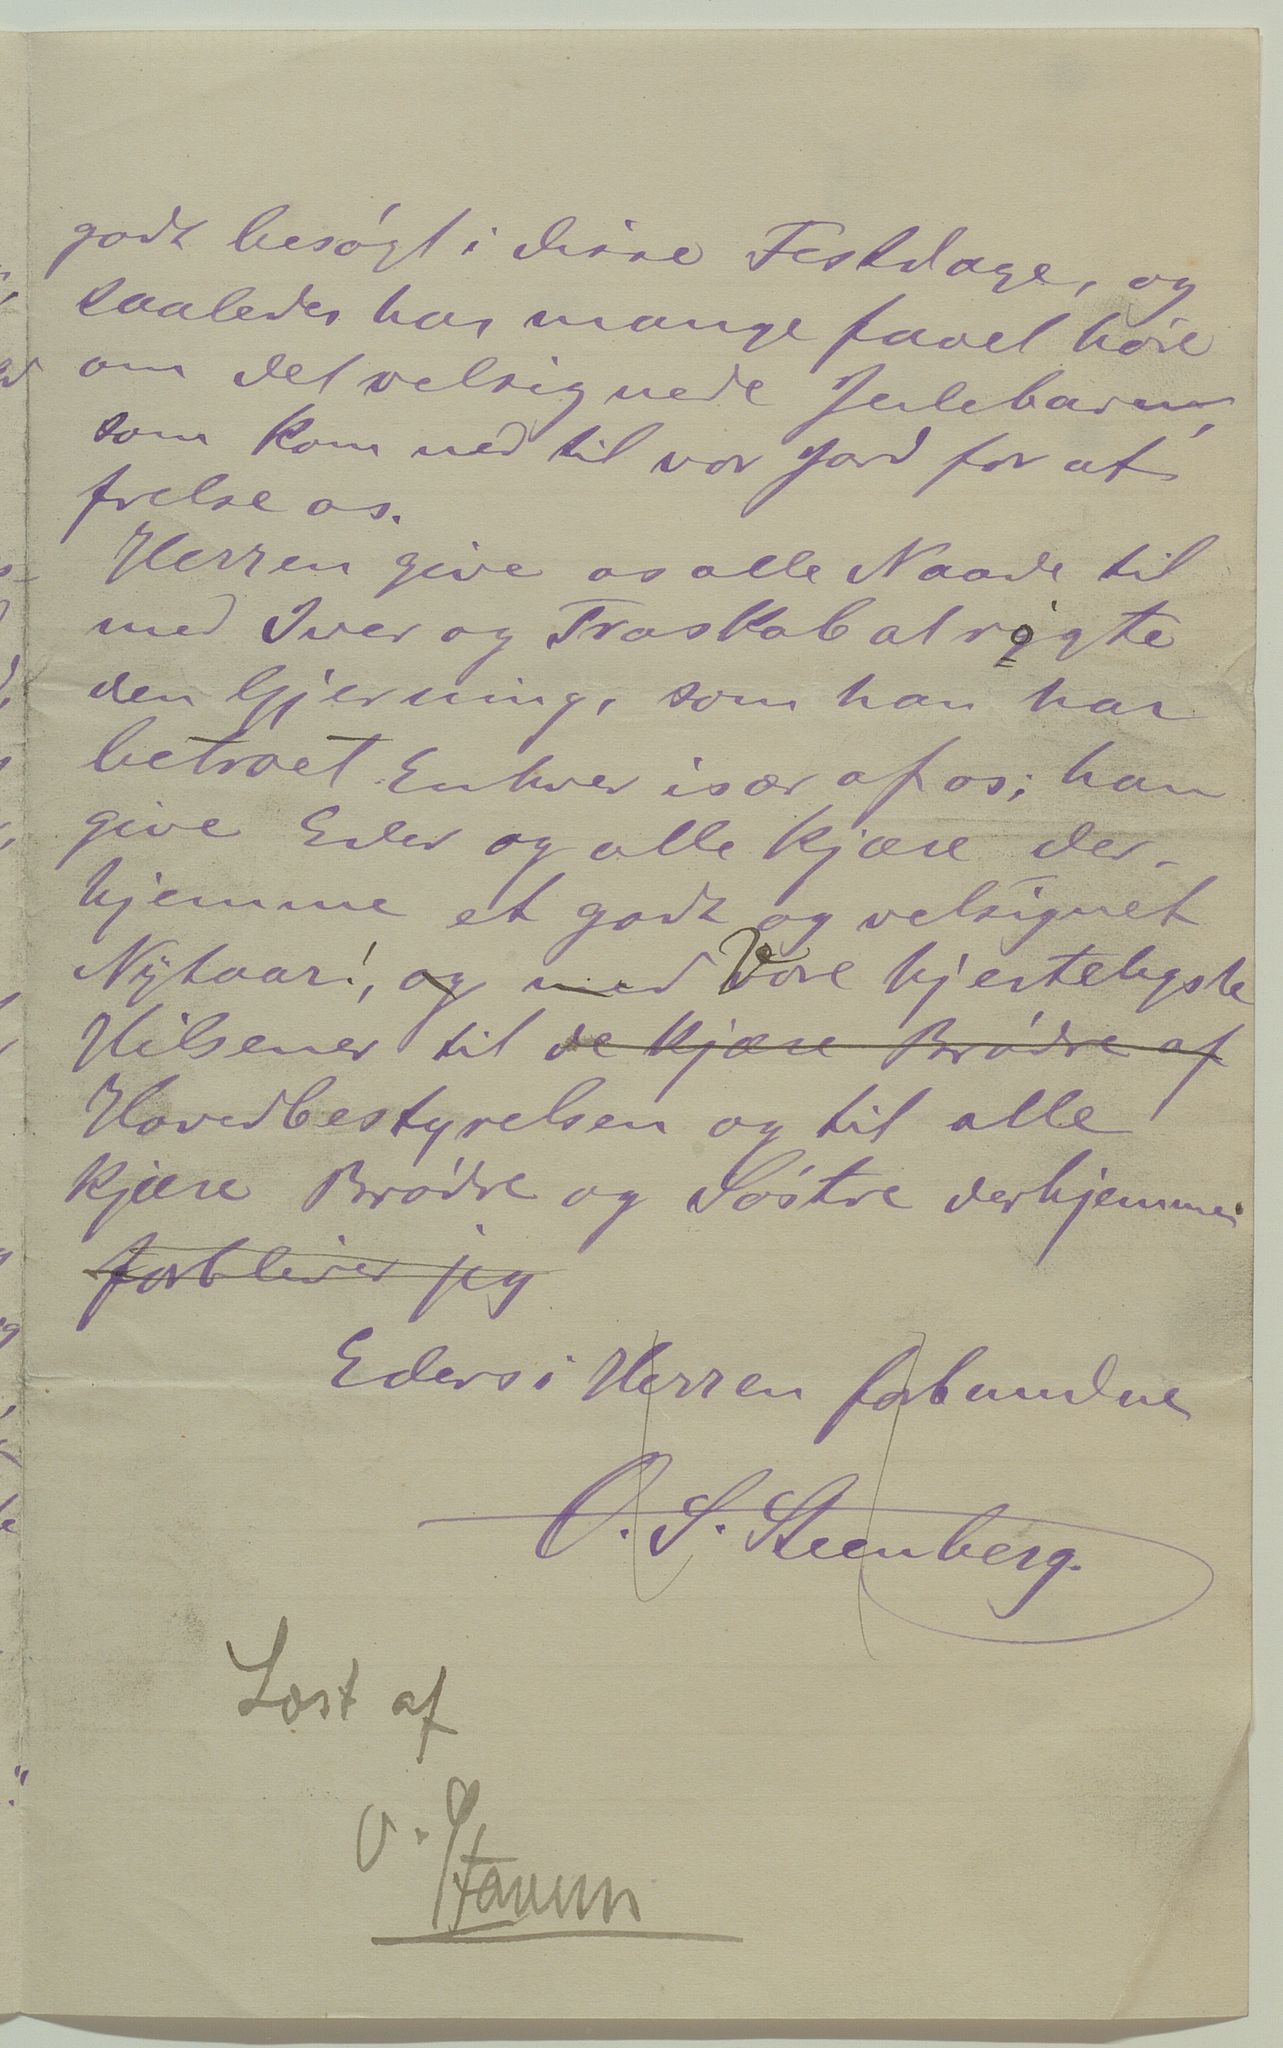 godt besøgt i disse Festdage, og
saaledes har mange faaet høre
om det velsignede Julebarn,
som kom ned til vor Jord for at
frelse os.
Herren give os alle Naade til
med Iver og Troskab at røgte
den Gjerning, som han har
betroet Enhver især af os; han
give Eder og alle kjære der-
hjemme et godt og velsignet
Nytaar!, og med Vore hjerteligste
Hilsener til de kjære Brødre af
Hovedbestyrelsen og til alle
kjære Brødre og Søstre derhjemme.
forbliver jeg
Eders i Herren forbundne
O. S. Steenberg.
Læst af